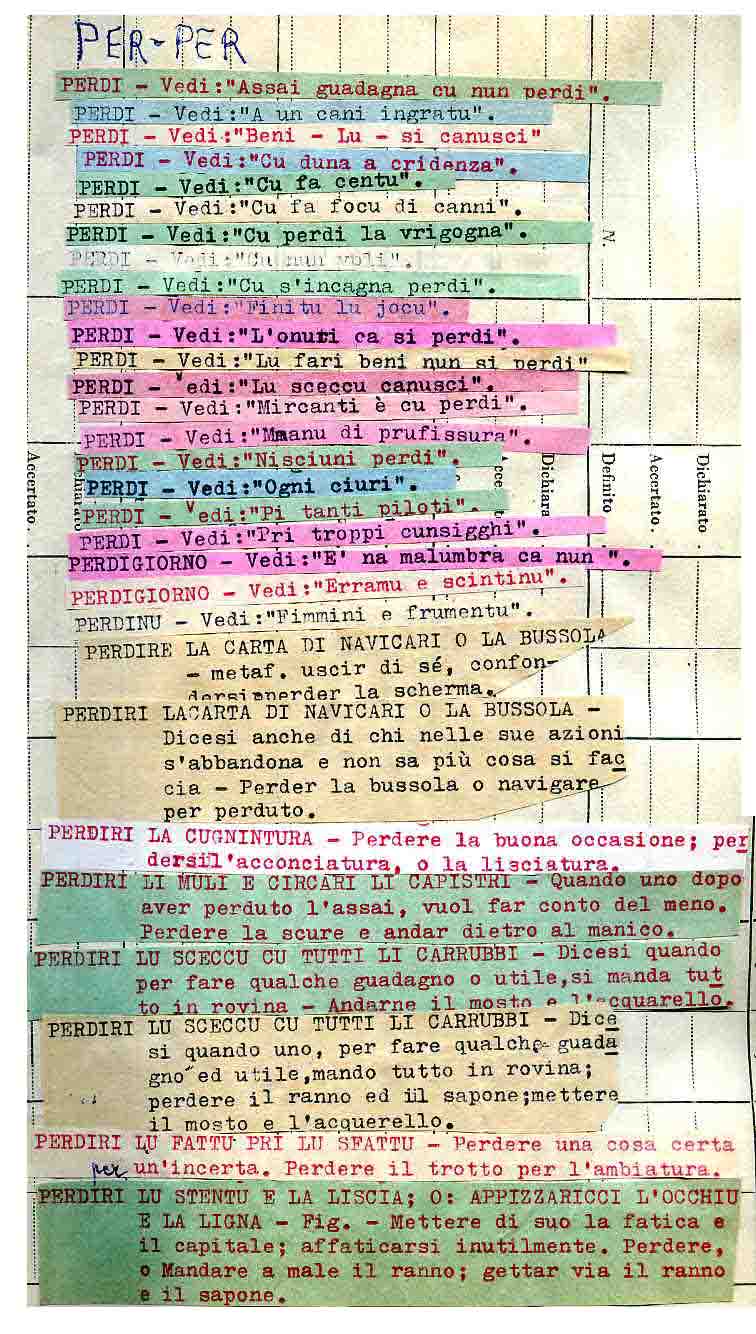 PER-PER
PERDI - Vedi:"Assai guadagna cu nun perdi".
PERDI - Vedi:"A un cani ingratu".
PERDI - Vedi:"Beni - Lu - si canusci"
PERDI - Vedi:"Cu duna a cridenza".
PERDI - Vedi:"Cu fa centu".
PERDI - Vedi:"Cu fa focu di canni".
PERDI - Vedi:"Cu perdi la vrigogna".
N.
PERDI - Vedi:"Cu nun voli".
PERDI - Vedi:"Cu s'incagna perdi".
PERDI - Vedi:"Finitu lu jocu".
PERDI - Vedi:"L'onuri ca si perdi".
PERDI - Vedi:"Lu fari beni nun si perdi"
PERDI - Vedi:"Lu sceccu canusci".
PERDI - Vedi:"Mircanti è cu perdi".
PERDI - Vedi:"Mmanu di prufissura".
PERDI - Vedi:"Nisciuni perdi".
PERDI - Vedi:"Ogni ciuri".
PERDI - Vedi:"Pi tanti piloti".
PERDI - Vedi:"Pri troppi cunsigghi".
Accertato.
Dichiara
Definito
Accertato.
Dichiarato.
PERDIGIORNO - Vedi:"E' na malumbra ca nun ".
PERDIGIORNO - Vedi:"Erramu e scintinu".
PERDINU - Vedi:"Fimmini e frumentu".
PERDIRE LA CARTA DI NAVICARI O LA BUSSOLA
- metaf. uscir di sé, confon-
dersi perder la scherma.
PERDIRI LACARTA DI NAVICARI O LA BUSSOLA -
Dicesi anche di chi nelle sue azioni
s'abbandona e non sa più cosa si fac
cia - Perder la bussola o navigare
per perduto.
PERDIRI LA CUGNINTURA - Perdere la buona occasione; per
dersil'acconciatura, o la lisciatura.
PERDIRI LI MULI E CIRCARI LI CAPISTRI - Quando uno dopo
aver perduto l'assai, vuol far conto del meno.
Perdere la scure e andar dietro al manico.
PERDIRI LU SCECCU CU TUTTI LI CARRUBBI - Dicesi quando
per fare qualche guadagno o utile,si manda tut
to in rovina - Andarne il mosto e l'acquarello.
PERDIRI LU SCECCU CU TUTTI LI CARRUBBI - Dice
si quando uno, per fare qualche guada
gno ed utile,mando tutto in rovina;
perdere il ranno ed il sapone;mettere
il mosto e l'acquerello.
PERDIRI LU FATTU PRI LU SFATTU - Perdere una cosa certa
per un'incerta. Perdere il trotto per l'ambiatura.
PERDIRI LU STENTU E LA LISCIA; O: APPIZZARICCI L'OCCHIU
E LA LIGNA - Fig. - Mettere di suo la fatica e
il capitale; affaticarsi inutilmente. Perdere,
o Mandare a male il ranno; gettar via il ranno
e il sapone.